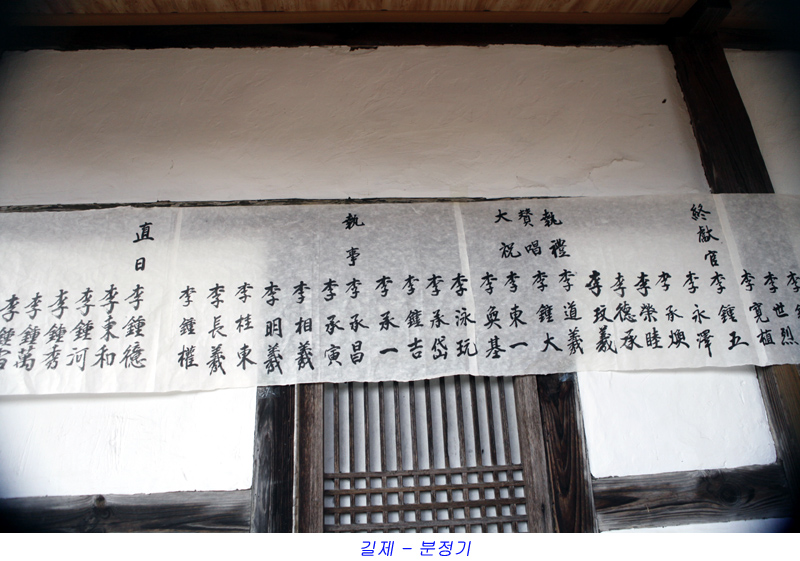 李世烈
李寬植
終獻官
李鍾五
李永澤
李承煥
李榮睦
李德承
李玟羲
執禮
李道羲
贊唱
李鍾大
大祝
李東一
李奐基
李泳玩
李承岱
李鍾吉
李承一
執事
李承昌
李承寅
李相羲
李明羲
李桂東
李長羲
李鍾權
直日
李鍾德
李東和
李鍾河
李鍾秀
李鍾萬
李鍾
길제 - 분정기